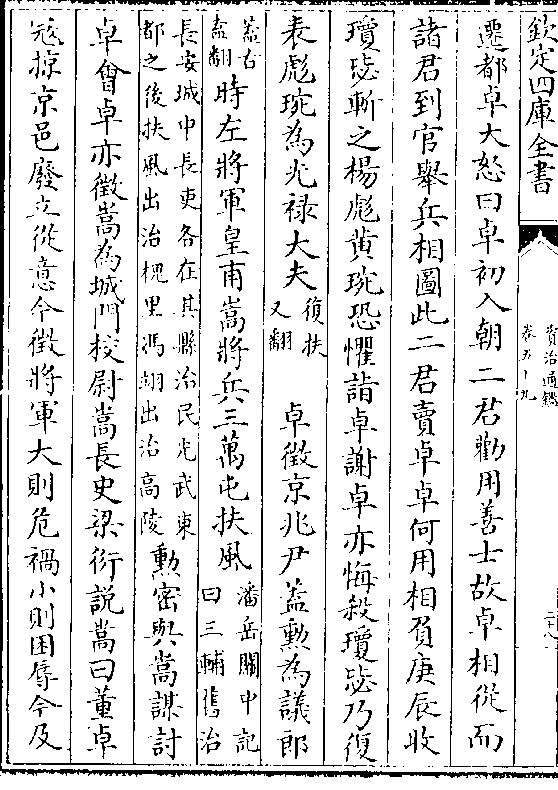 欽定四庫全書
資治通鑑
卷五十九
遷都卓大怒曰卓初入朝二君勸用善士故卓相從而
諸君到官舉兵相圖此二君賣卓卓何用相負庚辰收
瓊毖斬之楊彪黄琬恐懼詣卓謝卓亦悔殺瓊毖乃復
表彪琬為光禄大夫復扶又翻卓徵京兆尹蓋勲為議郎
蓋古盍翻時左將軍皇甫嵩將兵三萬屯扶風潘岳關中記曰三輔舊治
長安城中長吏各在其縣治民光武東都之後扶風出治槐里馮翊出治高陵勲密與嵩謀討
卓會卓亦徵嵩為城門校尉嵩長史梁衍説嵩曰董卓
宼掠京邑廢立從意今徵將軍大則危禍小則困辱今及